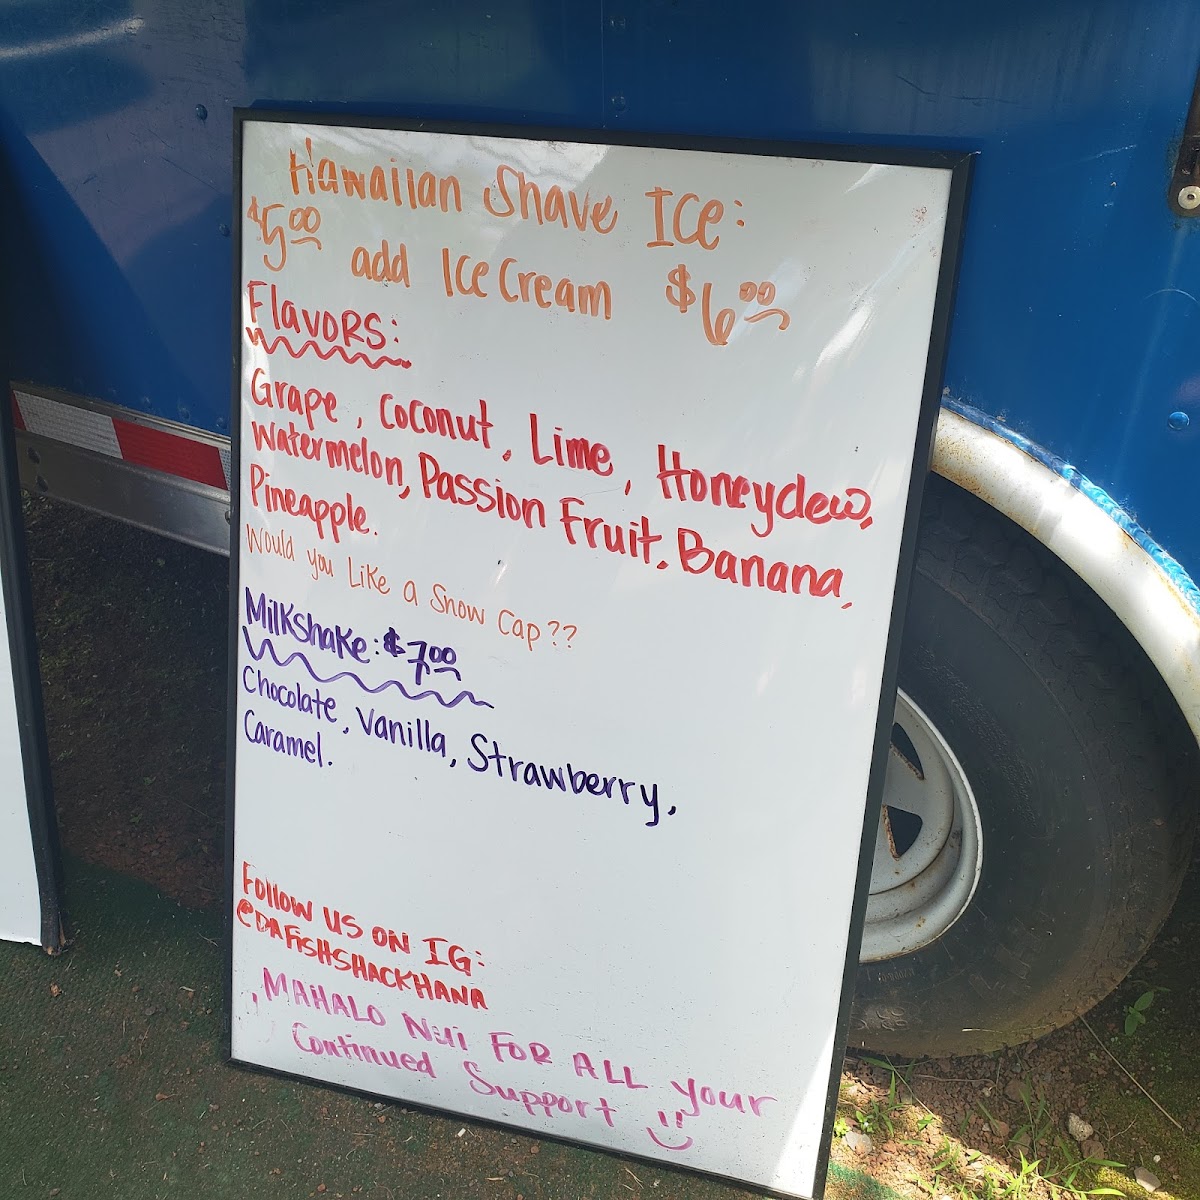 Hawaiian Shave Ice:
$5.00 add Ice Cream $6.00
Flavors:
Grape, Coconut, Lime, Honeydew,
Watermelon, Passion Fruit, Banana,
Pineapple.
Would you Like a Snow Cap??
Milkshake: $7.00
Chocolate, Vanilla, Strawberry,
Caramel.
Follow us on IG:
@DAFISHSHACKHANA
MAHALO Nui FOR ALL your
Continued Support